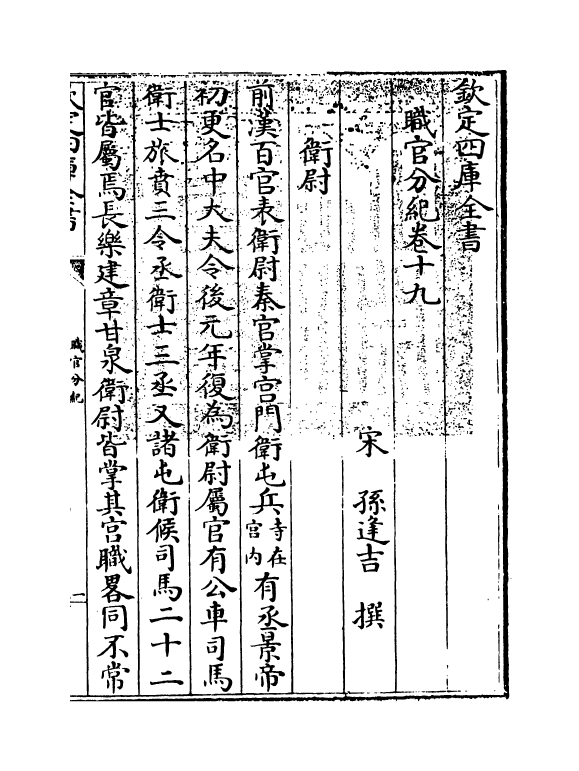 欽定四庫全書
職官分紀卷十九
宋 孫逢吉 撰
衛尉
前漢百官表衛尉秦官掌宮門衛屯兵寺在宮内有丞景帝
初更名中大夫令後元年復為衛尉屬官有公車司馬
衛士旅賁三令丞衛士三丞又諸屯衛候司馬二十二
官皆屬焉長樂建章甘泉衛尉皆掌其宮職畧同不常
職官分紀